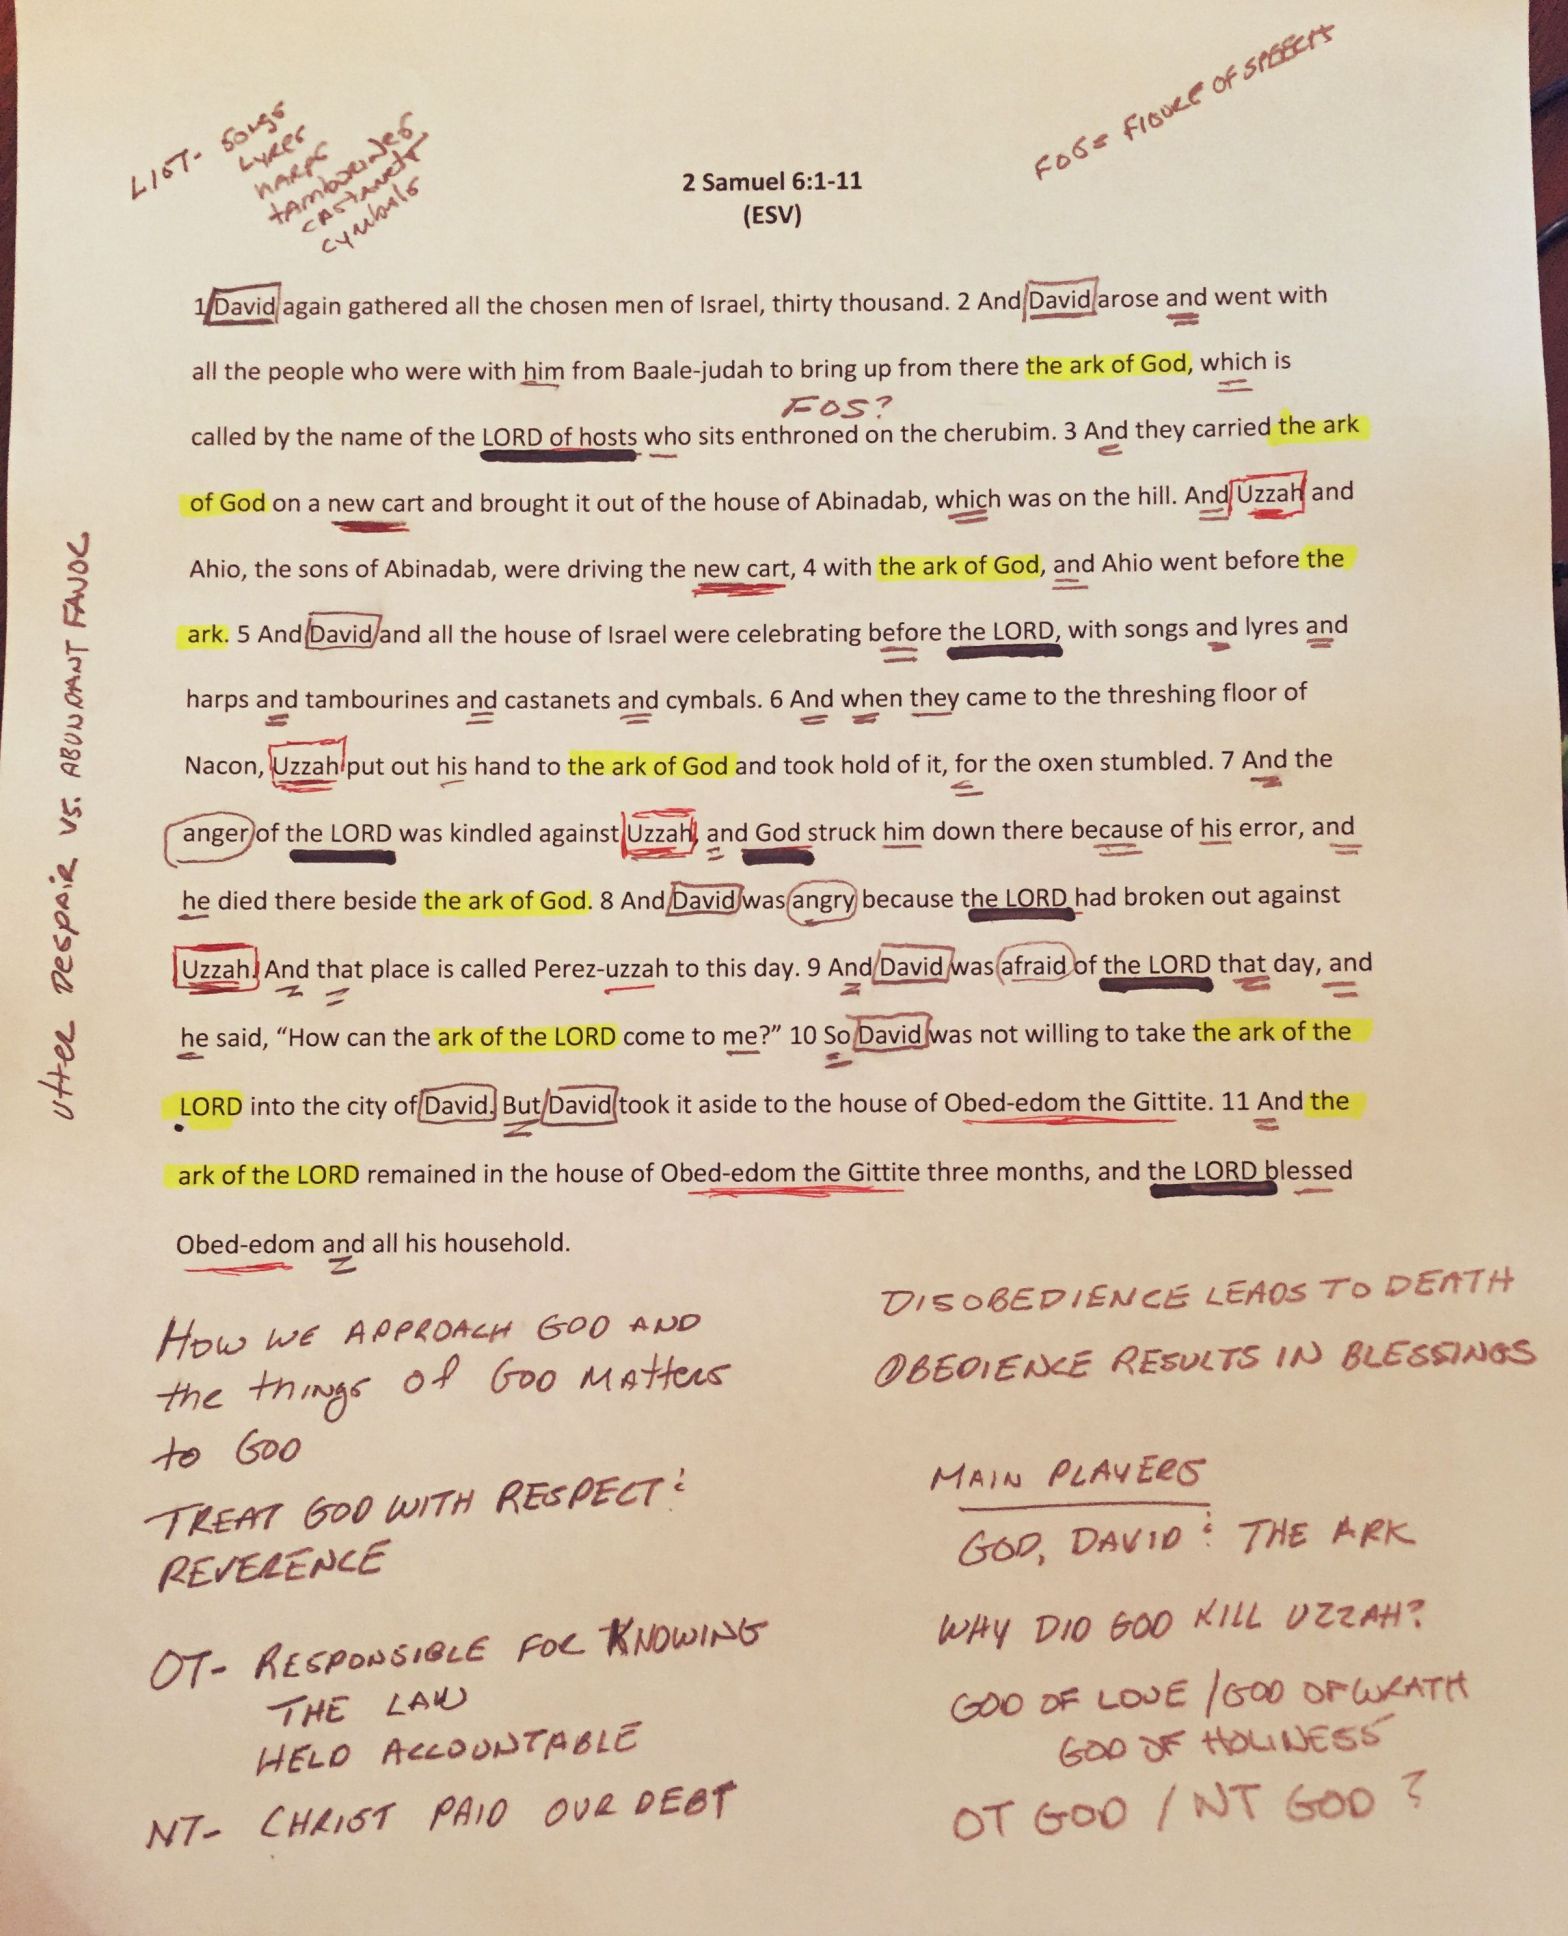 LIST- SONGS
LYRES
HARPS
TAMBOURINES
CASTANETS
CYMBALS
FOS= FIGURE OF SPEECH
2 Samuel 6:1-11
(ESV)
1 David again gathered all the chosen men of Israel, thirty thousand. 2 And David arose and went with
all the people who were with him from Baale-judah to bring up from there the ark of God, which is
FOS?
called by the name of the LORD of hosts who sits enthroned on the cherubim. 3 And they carried the ark
of God on a new cart and brought it out of the house of Abinadab, which was on the hill. And Uzzah and
Ahio, the sons of Abinadab, were driving the new cart, 4 with the ark of God, and Ahio went before the
ark. 5 And David and all the house of Israel were celebrating before the LORD, with songs and lyres and
harps and tambourines and castanets and cymbals. 6 And when they came to the threshing floor of
Nacon, Uzzah put out his hand to the ark of God and took hold of it, for the oxen stumbled. 7 And the
anger of the LORD was kindled against Uzzah, and God struck him down there because of his error, and
he died there beside the ark of God. 8 And David was angry because the LORD had broken out against
Uzzah. And that place is called Perez-uzzah to this day. 9 And David was afraid of the LORD that day, and
he said, “How can the ark of the LORD come to me?” 10 So David was not willing to take the ark of the
LORD into the city of David. But David took it aside to the house of Obed-edom the Gittite. 11 And the
ark of the LORD remained in the house of Obed-edom the Gittite three months, and the LORD blessed
Obed-edom and all his household.
Utter Despair vs. ABUNDANT FAVOR
HOW WE APPROACH GOD AND
the things of GOD MAtters
to GOD
TREAT GOD WITH RESPECT &
REVERENCE
OT- RESPONSIBLE FOR KNOWING
THE LAW
HELD ACCOUNTABLE
NT- CHRIST PAID OUR DEBT
DISOBEDIENCE LEADS TO DEATH
OBEDIENCE RESULTS IN BLESSINGS
MAIN PLAYERS
GOD, DAVID & THE ARK
WHY DID GOD KILL UZZAH?
GOD OF LOVE / GOD OF WRATH
GOD OF HOLINESS
OT GOD / NT GOD ?